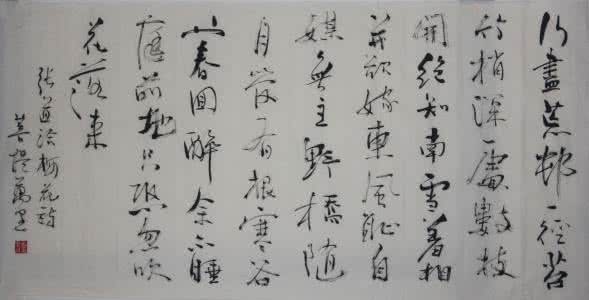 行盡荒邨一徑苔
竹梢深處數枝
開絕知南雪羞相
並欲嫁東風恥自
媒無主野橋隨
月管有根寒谷
也春回醉余不睡
庭前地只恐忽吹
花落来
张道洽梅花詩
菩提